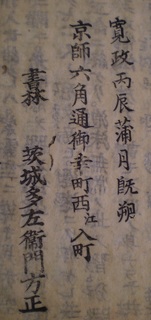 寛政丙辰蒲月既朔
京師六角通御幸町西江入町
書林 茨城多左衛門方正